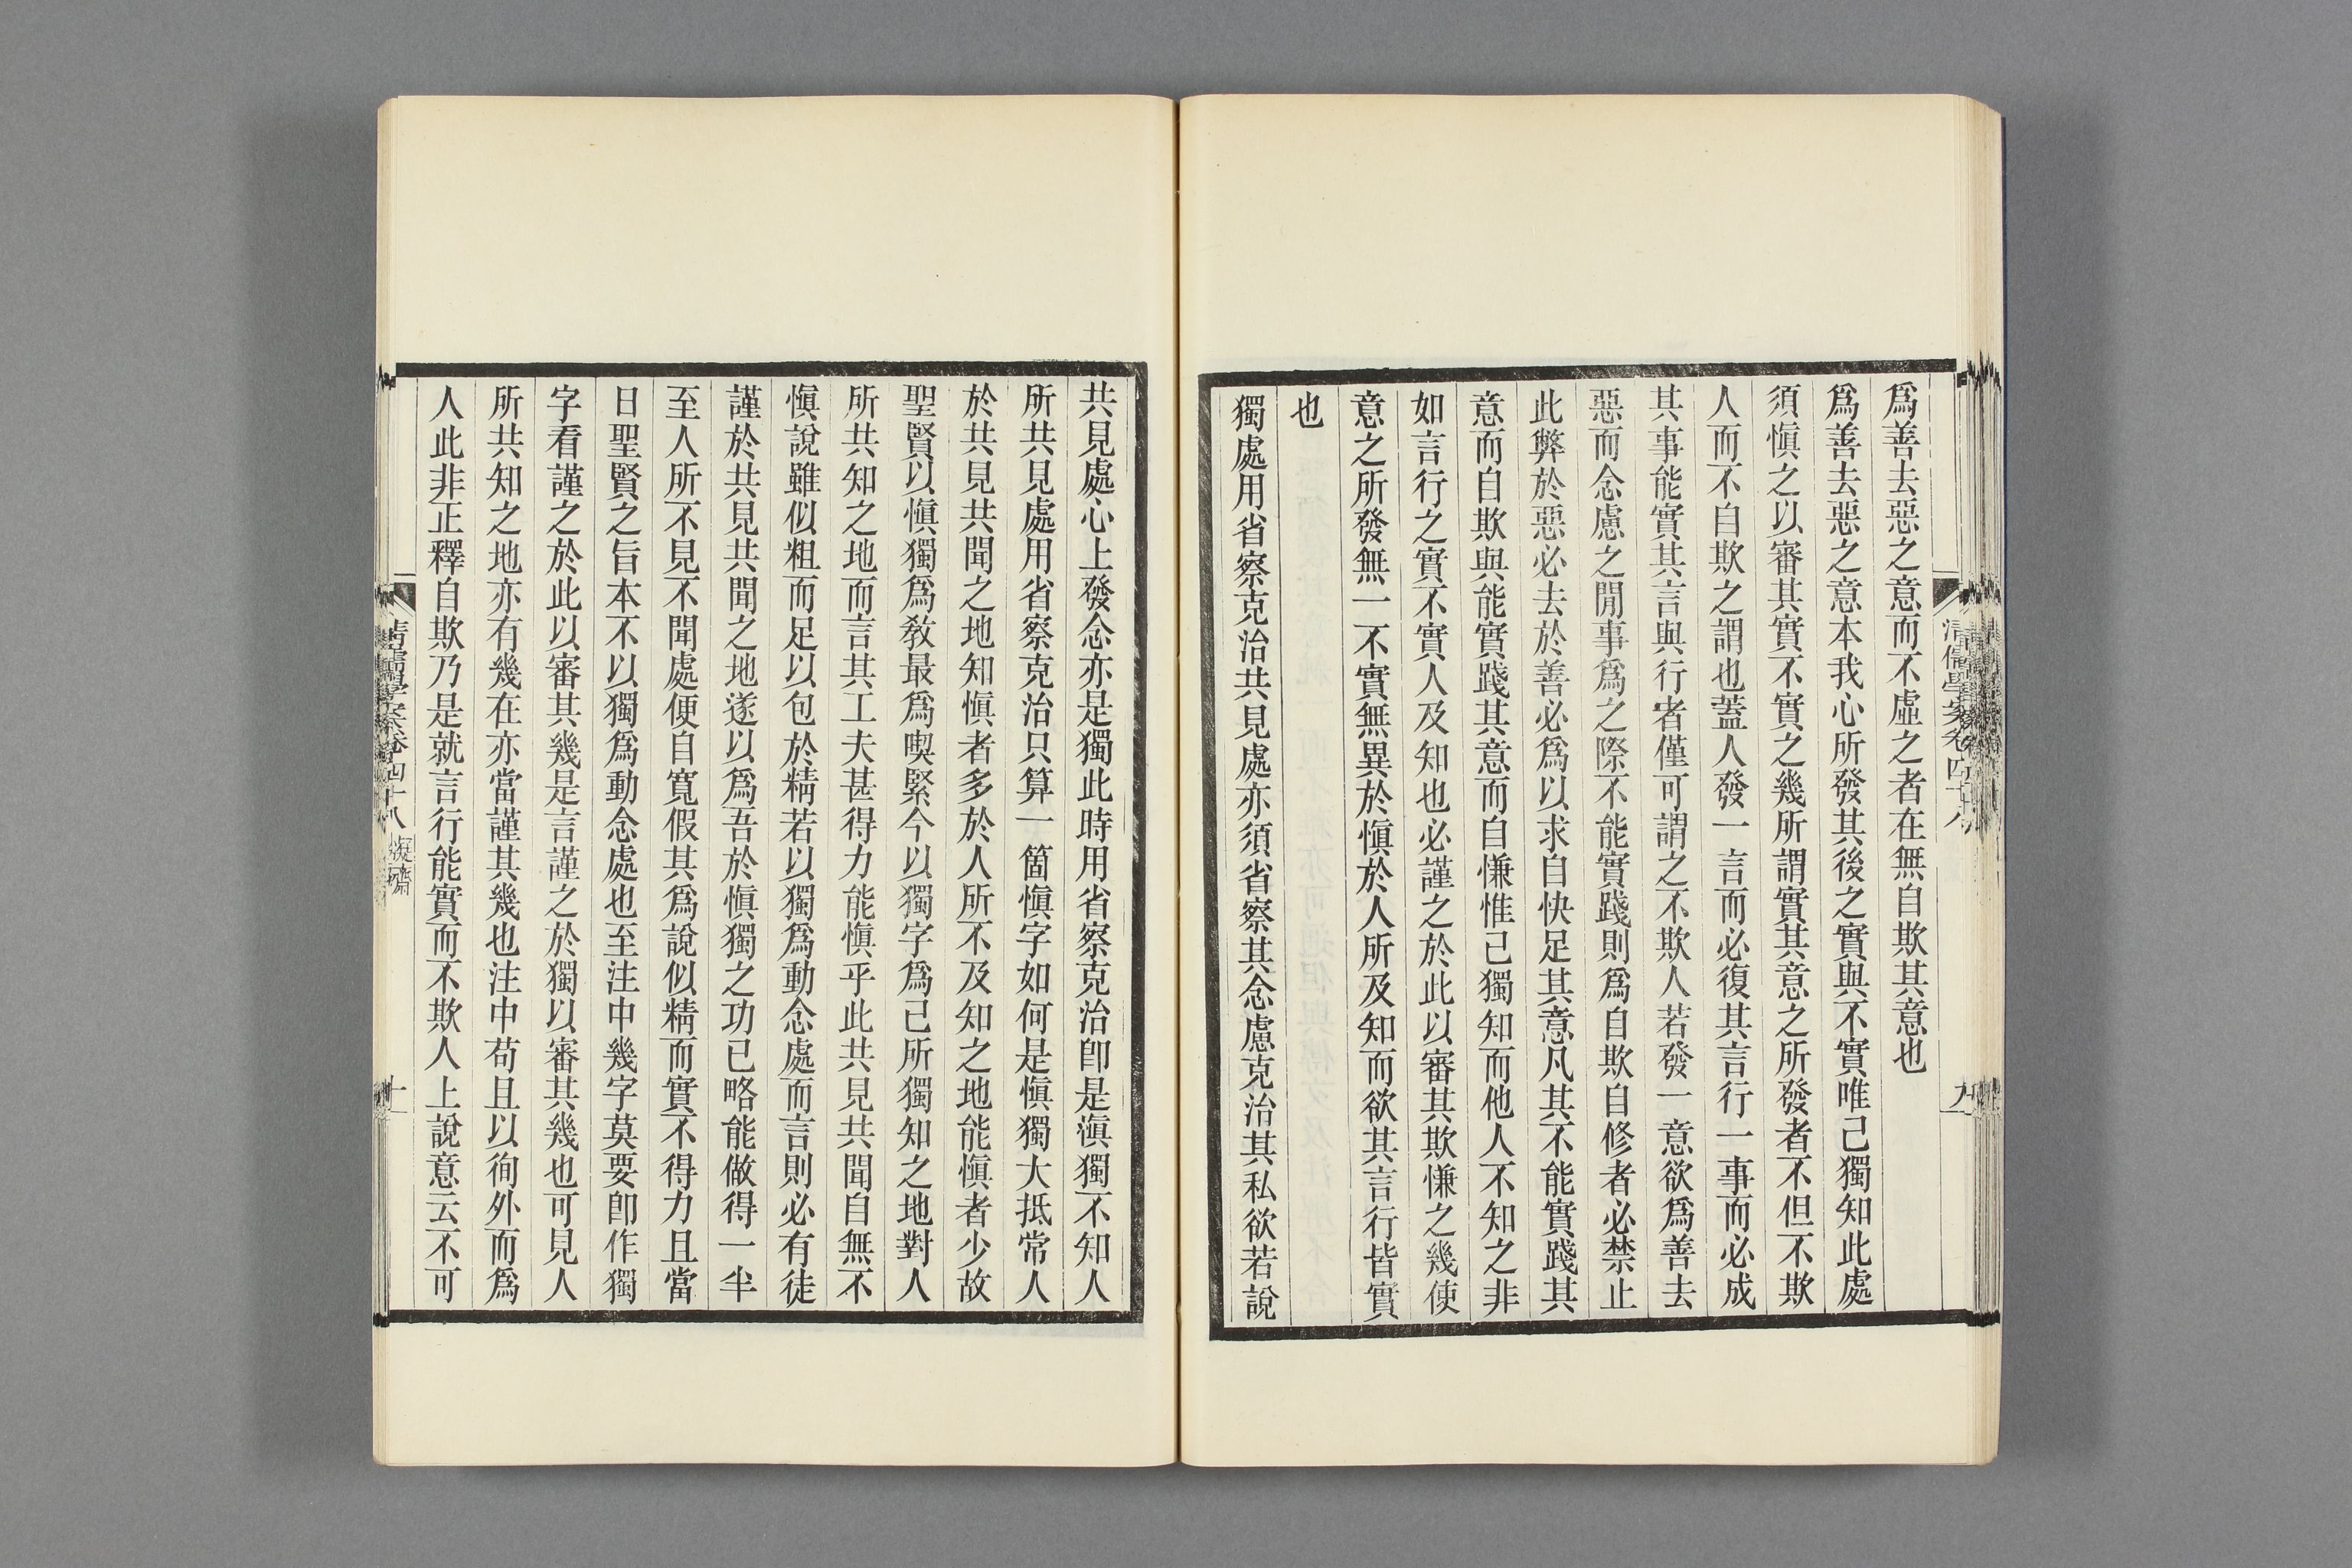 清儒學案卷四十八
九
爲善去惡之意而不虛之者在無自欺其意也
爲善去惡之意本我心所發其後之實與不實唯己獨知此處
須愼之以審其實不實之幾所謂實其意之所發者不但不欺
人而不自欺之謂也蓋人發一言而必復其言行一事而必成
其事能實其言與行者僅可謂之不欺人若發一意欲爲善去
惡而念慮之閒事爲之際不能實踐則爲自欺自修者必禁止
此弊於惡必去於善必爲以求自快足其意凡其不能實踐其
意而自欺與能實踐其意而自慊惟己獨知而他人不知之非
如言行之實不實人及知也必謹之於此以審其欺慊之幾使
意之所發無一不實無異於愼於人所及知而欲其言行皆實
也
獨處用省察克治共見處亦須省察其念慮克治其私欲若說
共見處心上發念亦是獨此時用省察克治卽是愼獨不知人
所共見處用省察克治只算一箇愼字如何是愼獨大抵常人
於共見共聞之地知愼者多於人所不及知之地能愼者少故
聖賢以愼獨爲敎最爲喫緊今以獨字爲己所獨知之地對人
所共知之地而言其工夫甚得力能愼乎此共見共聞自無不
愼說雖似粗而足以包於精若以獨爲動念處而言則必有徒
謹於共見共聞之地遂以爲吾於愼獨之功已略能做得一半
至人所不見不聞處便自寬假其爲說似精而實不得力且當
日聖賢之旨本不以獨爲動念處也至注中幾字莫要卽作獨
字看謹之於此以審其幾是言謹之於獨以審其幾也可見人
所共知之地亦有幾在亦當謹其幾也注中苟且以徇外而爲
人此非正釋自欺乃是就言行能實而不欺人上說意云不可
清儒學案卷四十八 凝齋
十